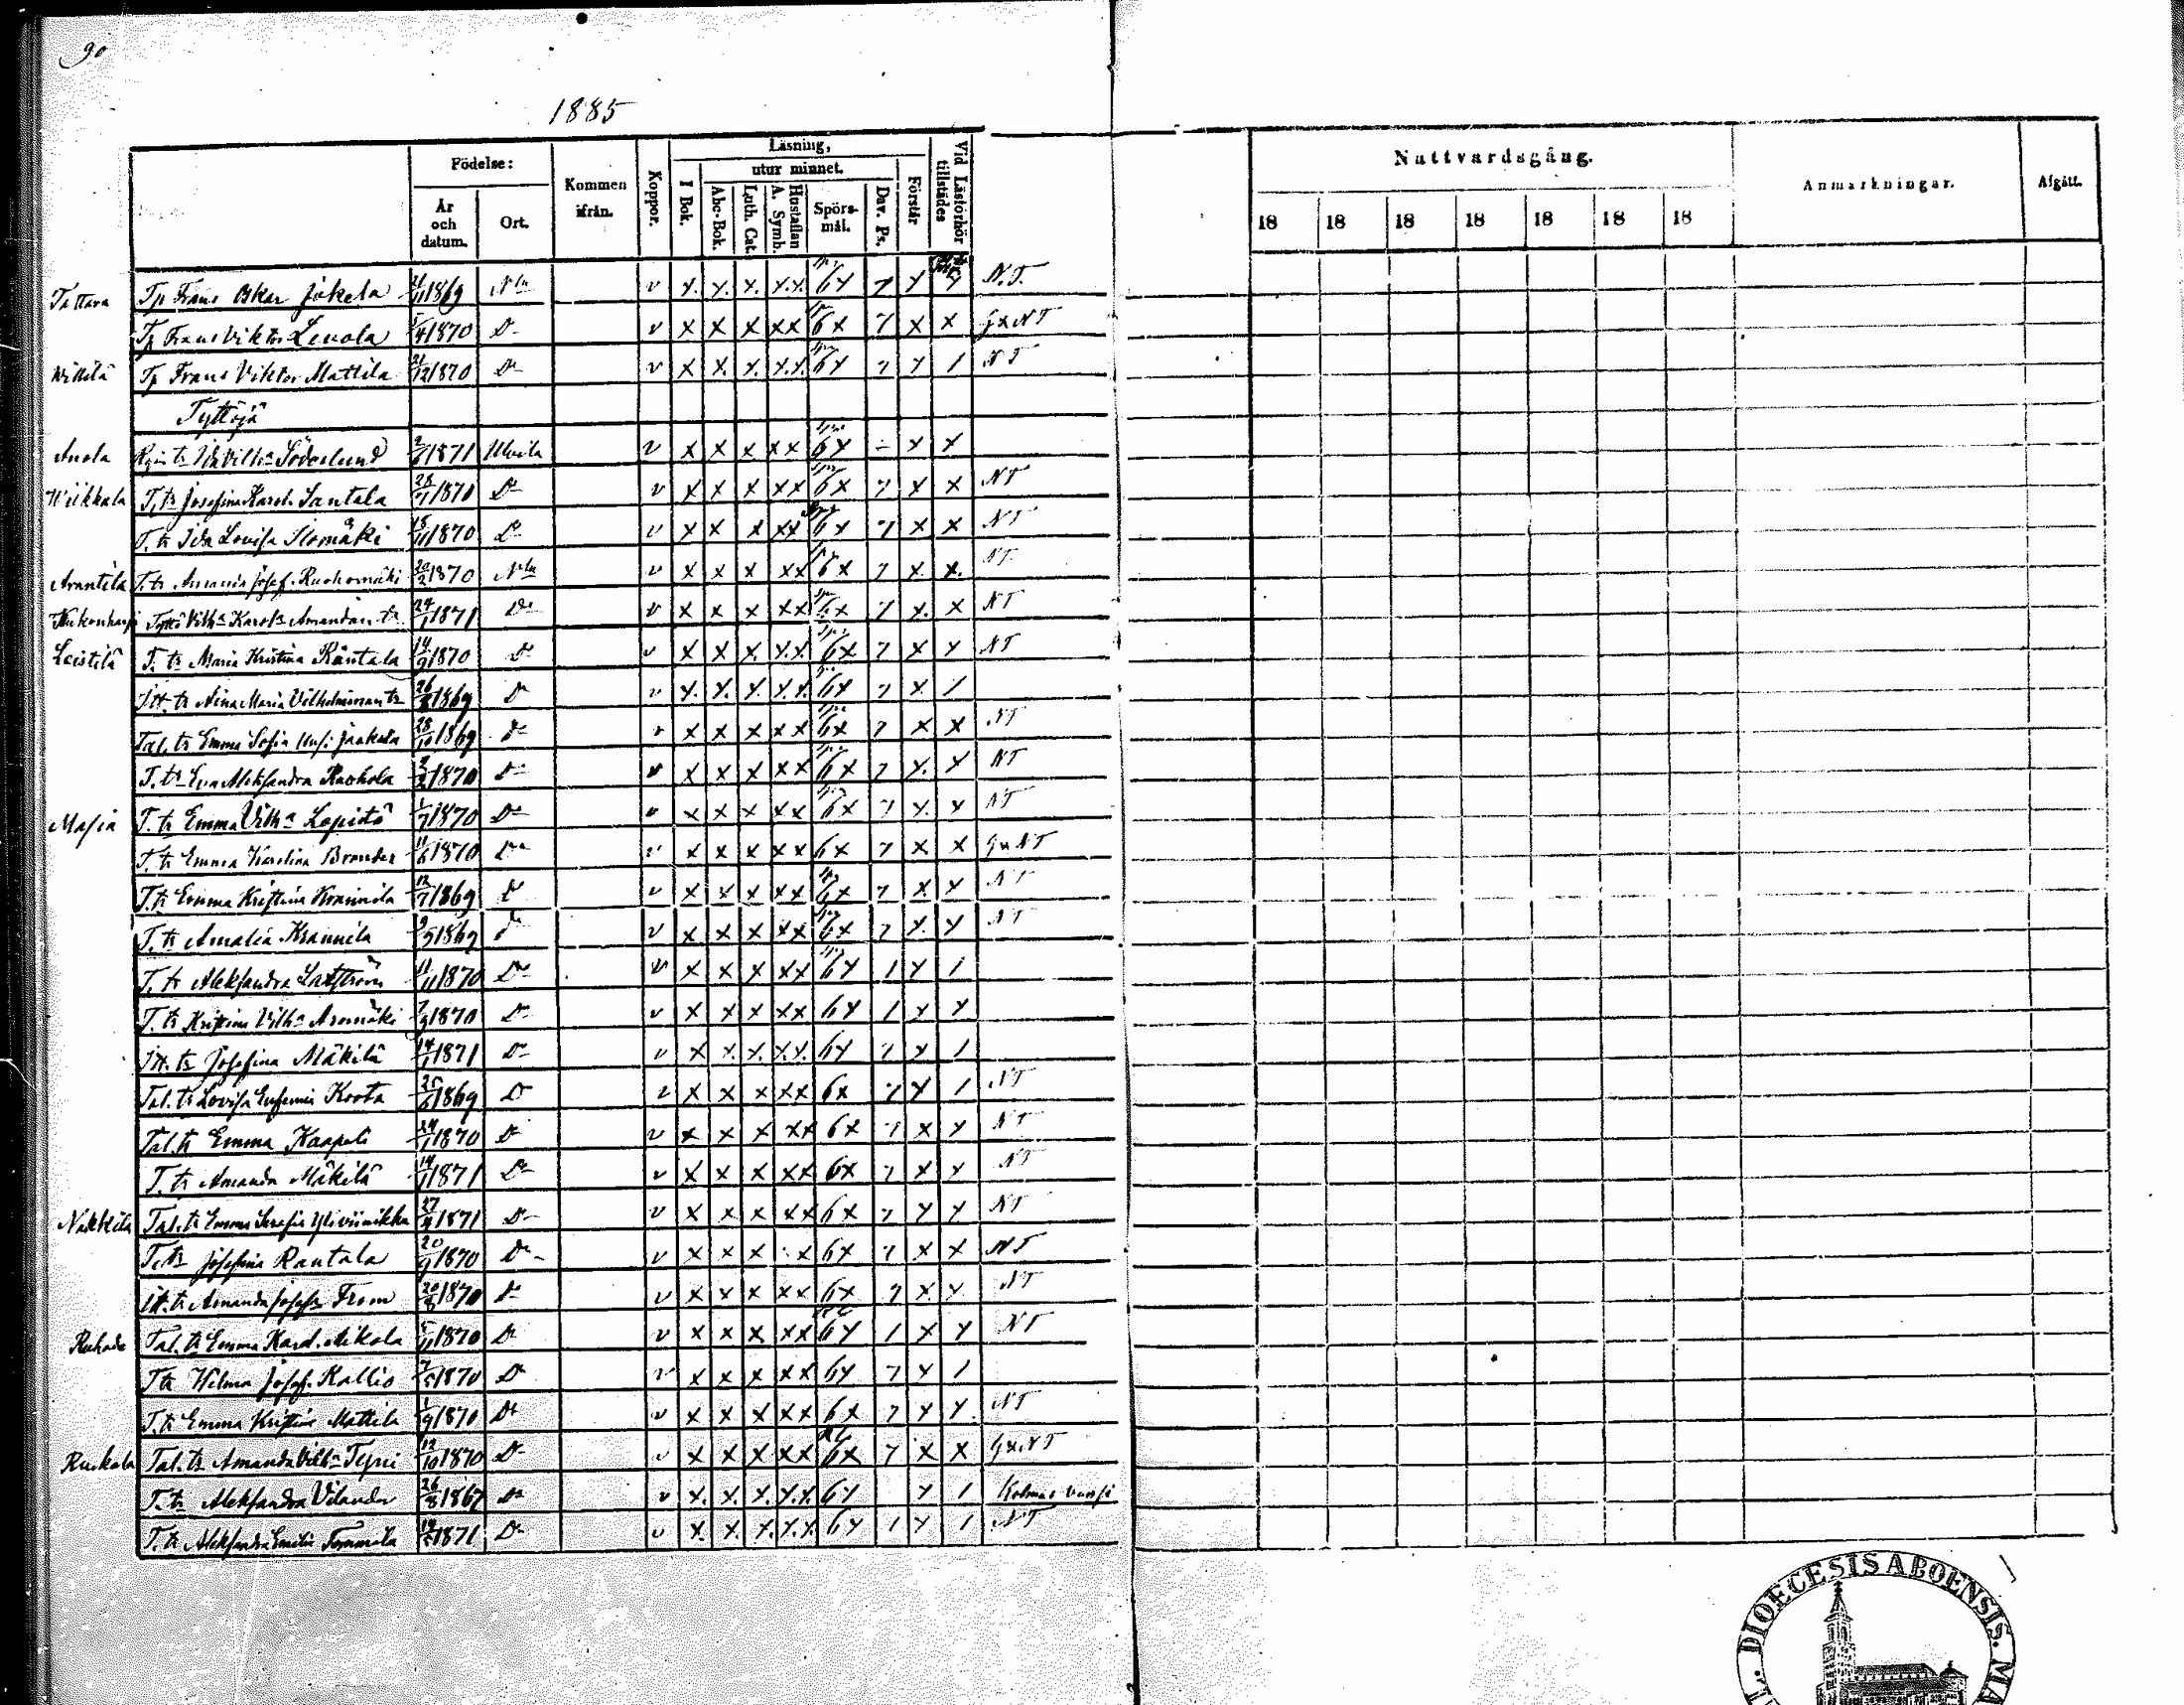 90
1885
Födelse:
År och datum.
Ort.
Kommen ifrån.
Koppor.
Läsning,
I Bok.
utur minnet.
Abc-Bok.
Luth. Cat.
A. Symb. Hustaflan
Spörsmål.
Dav. Ps.
Förstår
Vid Läsförhör tillstädes
Nattvardsgång.
18 18 18 18 18 18 18
Anmärkningar.
Afgått.
Tattara Tp Frans Oskar Jäkelä 1869 Nla v x. x. x. x.x. 6x 7 x N.T.
Tp Frans Viktor Lenola 5/4 1870 Do v x x x xx 6x 7 x x Gx NT
Wiltilä Tp Frans Viktor Mattila 21/12 1870 Do v x x. x. x.x. 6x 7 x 1 NT
Tyttöjä
Anola Vilha Söderlund 1871 Ulvila v x x x xx 6x - x x
Wiikkala T. tr Josefina Karol. Santala 28/7 1870 Do v x x x xx 6x 7 x x NT
T. tr Ida Lovisa Ilomäki 18/11 1870 Do v x x x xx 6x 7 x x NT
Arantila T. tr Amanda Josef. Ruohomäki 20/2 1870 Nla v x x x xx 6x 7 x x. NT
Vilha Karola Amandan tr 24/1 1871 Do v x x x xx 6x 7 x. x NT
Leistilä T. tr Maria Kristina Räntälä 14/9 1870 Do v x x x. x.x 6x 7 x x NT
Itt. tr Aina Maria Vilhelmiinan tr 26 1869 Do v x. x. x. x.x. 6x 7 x. 1
Tal. tr Emma Sofia Jaakola 28/10 1869 Do v x x x xx 6x 7 x x NT
T. tr Eva Aleksandra Ruohola 1870 Do v x x x xx 6x 7 x. x NT
Masia T. tr Emma Vilha Lepistö 1/7 1870 Do v x x x xx 6x 7 x. x NT
T. tr Emma Karolina Brander 11/6 1870 Do v x x x xx 6x 7 x x Gx NT
T. tr Emma Kristina Krannila 12/7 1869 Do v x x x xx 6x 7 x x NT
T. tr Amalia Krannila 9/5 1869 Do v x x x xx 6x 7 x. x NT
T. tr Aleksandra 11/11 1870 Do v x x x xx 6x 1 x 1
T. tr Kristina Vilha Aromäki 7/9 1870 Do v x x x xx 6x 1 x x
Itt. tr Josefina Mäkilä 14/1 1871 Do v x x. x. x.x. 6x 7 x 1
Tal. tr Lovisa Eufemia Koota 25/6 1869 Do v x x x xx 6x 7 x 1 NT
Tal. tr Emma Kaapeli 24/1 1870 Do v x x x xx 6x 7 x x NT
T. tr Amanda Mäkilä 14/1 1871 Do v x x x xx 6x 7 x x NT
Nakkila Tal. tr Emma Serafia Yliviinikka 27 1871 Do v x x x xx 6x 7 x x NT
T. tr Josefina Rantala 20/9 1870 Do v x x x x 6x 7 x x NT
Itt. tr Amanda Josefa From 20/8 1870 Do v x x x xx 6x 7 x x NT
Tal. tr Emma Karol. Mikola 5/11 1870 Do v x x x xx 6x 1 x x NT
T. tr Wilma Josef. Kallio 7/5 1870 Do v x x x xx 6x 7 x 1
T. tr Emma Kristina Mattila 1/9 1870 Do v x x x xx 6x 7 x x NT
Ruskala Tal. tr Amanda Vilha Tyni 12/10 1870 Do v x x x xx 6x 7 x x Gx NT
T. tr Aleksandra Vilander 26/8 1867 Do v x. x. x. x.x. 6x x 1 Kolmas vuosi
T. tr Aleksandra Emilia Tommila 1871 Do v x. x. x. x.x. 6x 1 x 1 NT
DIOECESIS ABOENSIS. MA